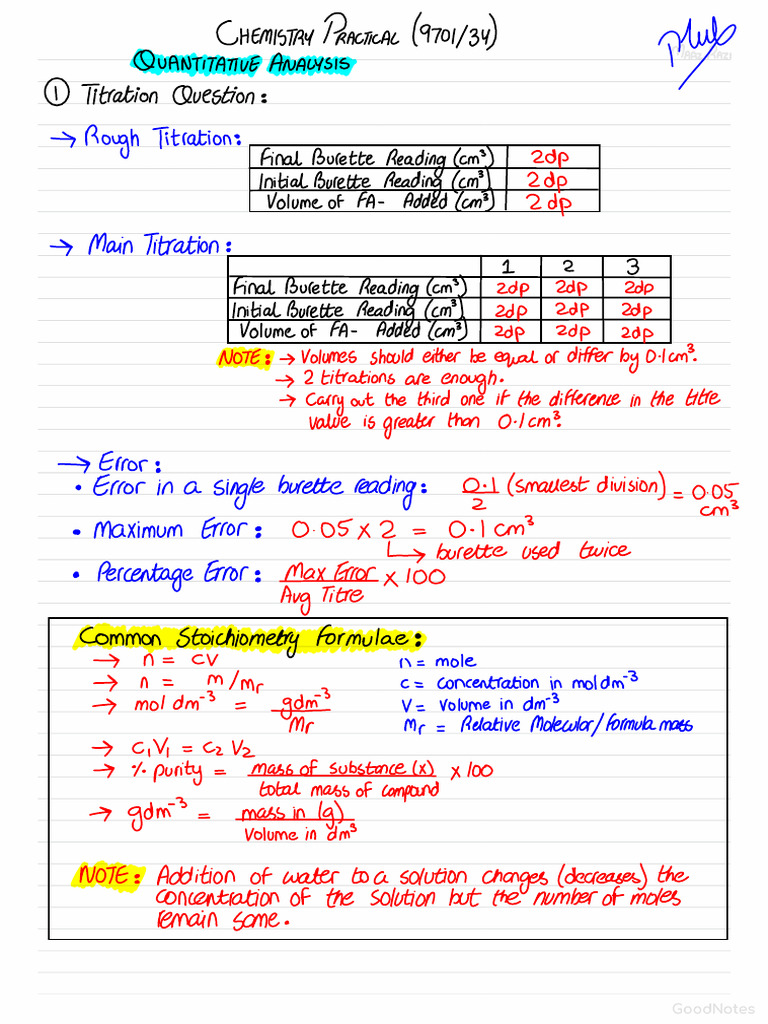 CHEMISTRY PRACTICAL (9701/34)
QUANTITATIVE ANALYSIS
① Titration Question:
→ Rough Titration:
Final Burette Reading (cm³) 2dp
Initial Burette Reading (cm³) 2dp
Volume of FA- Added (cm³) 2dp
→ Main Titration:
1 2 3
Final Burette Reading (cm³) 2dp 2dp 2dp
Initial Burette Reading (cm³) 2dp 2dp 2dp
Volume of FA- Added (cm³) 2dp 2dp 2dp
NOTE: → Volumes should either be equal or differ by 0.1cm³.
→ 2 titrations are enough.
→ Carry out the third one if the difference in the titre
value is greater than 0.1cm³.
→ Error:
• Error in a single burette reading: 0.1/2 (smallest division) = 0.05 cm³
• Maximum Error: 0.05 × 2 = 0.1cm³
↳ burette used twice
• Percentage Error: Max Error/Avg Titre × 100
Common Stoichiometry Formulae:
→ n = cv n = mole
→ n = m/Mr c = concentration in moldm⁻³
→ moldm⁻³ = gdm⁻³/Mr V = Volume in dm⁻³
Mr = Relative Molecular/formula mass
→ C₁V₁ = C₂V₂
→ % purity = mass of substance (x)/total mass of compound × 100
→ gdm⁻³ = mass in (g)/Volume in dm³
NOTE: Addition of water to a solution changes (decreases) the
concentration of the solution but the number of moles
remain same.
GoodNotes